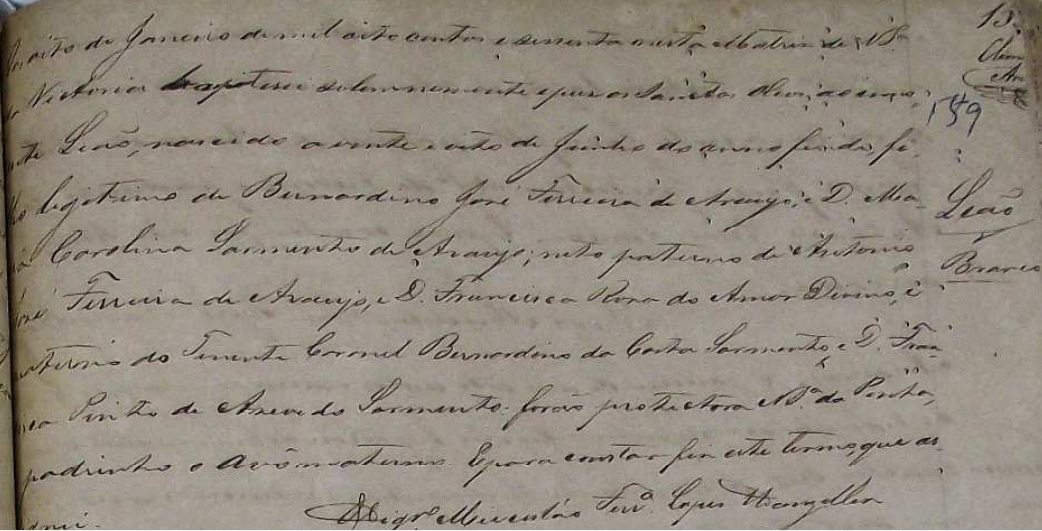 oito de Janeiro de mil oito centos e sessenta nesta Matriz de N. Sra
Victoria baptisei solemnemente e pus os Santos Oleos ao inno-
te Leão, nascido a vinte e oito de Junho do anno findo, fi-
legitimo de Bernardino José Ferreira de Araujo, e D. Ma-
Carolina Sarmento de Araujo; neto paterno de Antonio
Ferreira de Araujo, e D. Francisca Rosa do Amor Divino, e
materno do Tenente Coronel Bernardino da Costa Sarmento, e D. Fran-
Pinto de Azevedo Sarmento. forão protectora N. Sa. da Penha,
padrinho o avô materno. E para constar fiz este termo que as-
Vigro
159
Leão
Branco